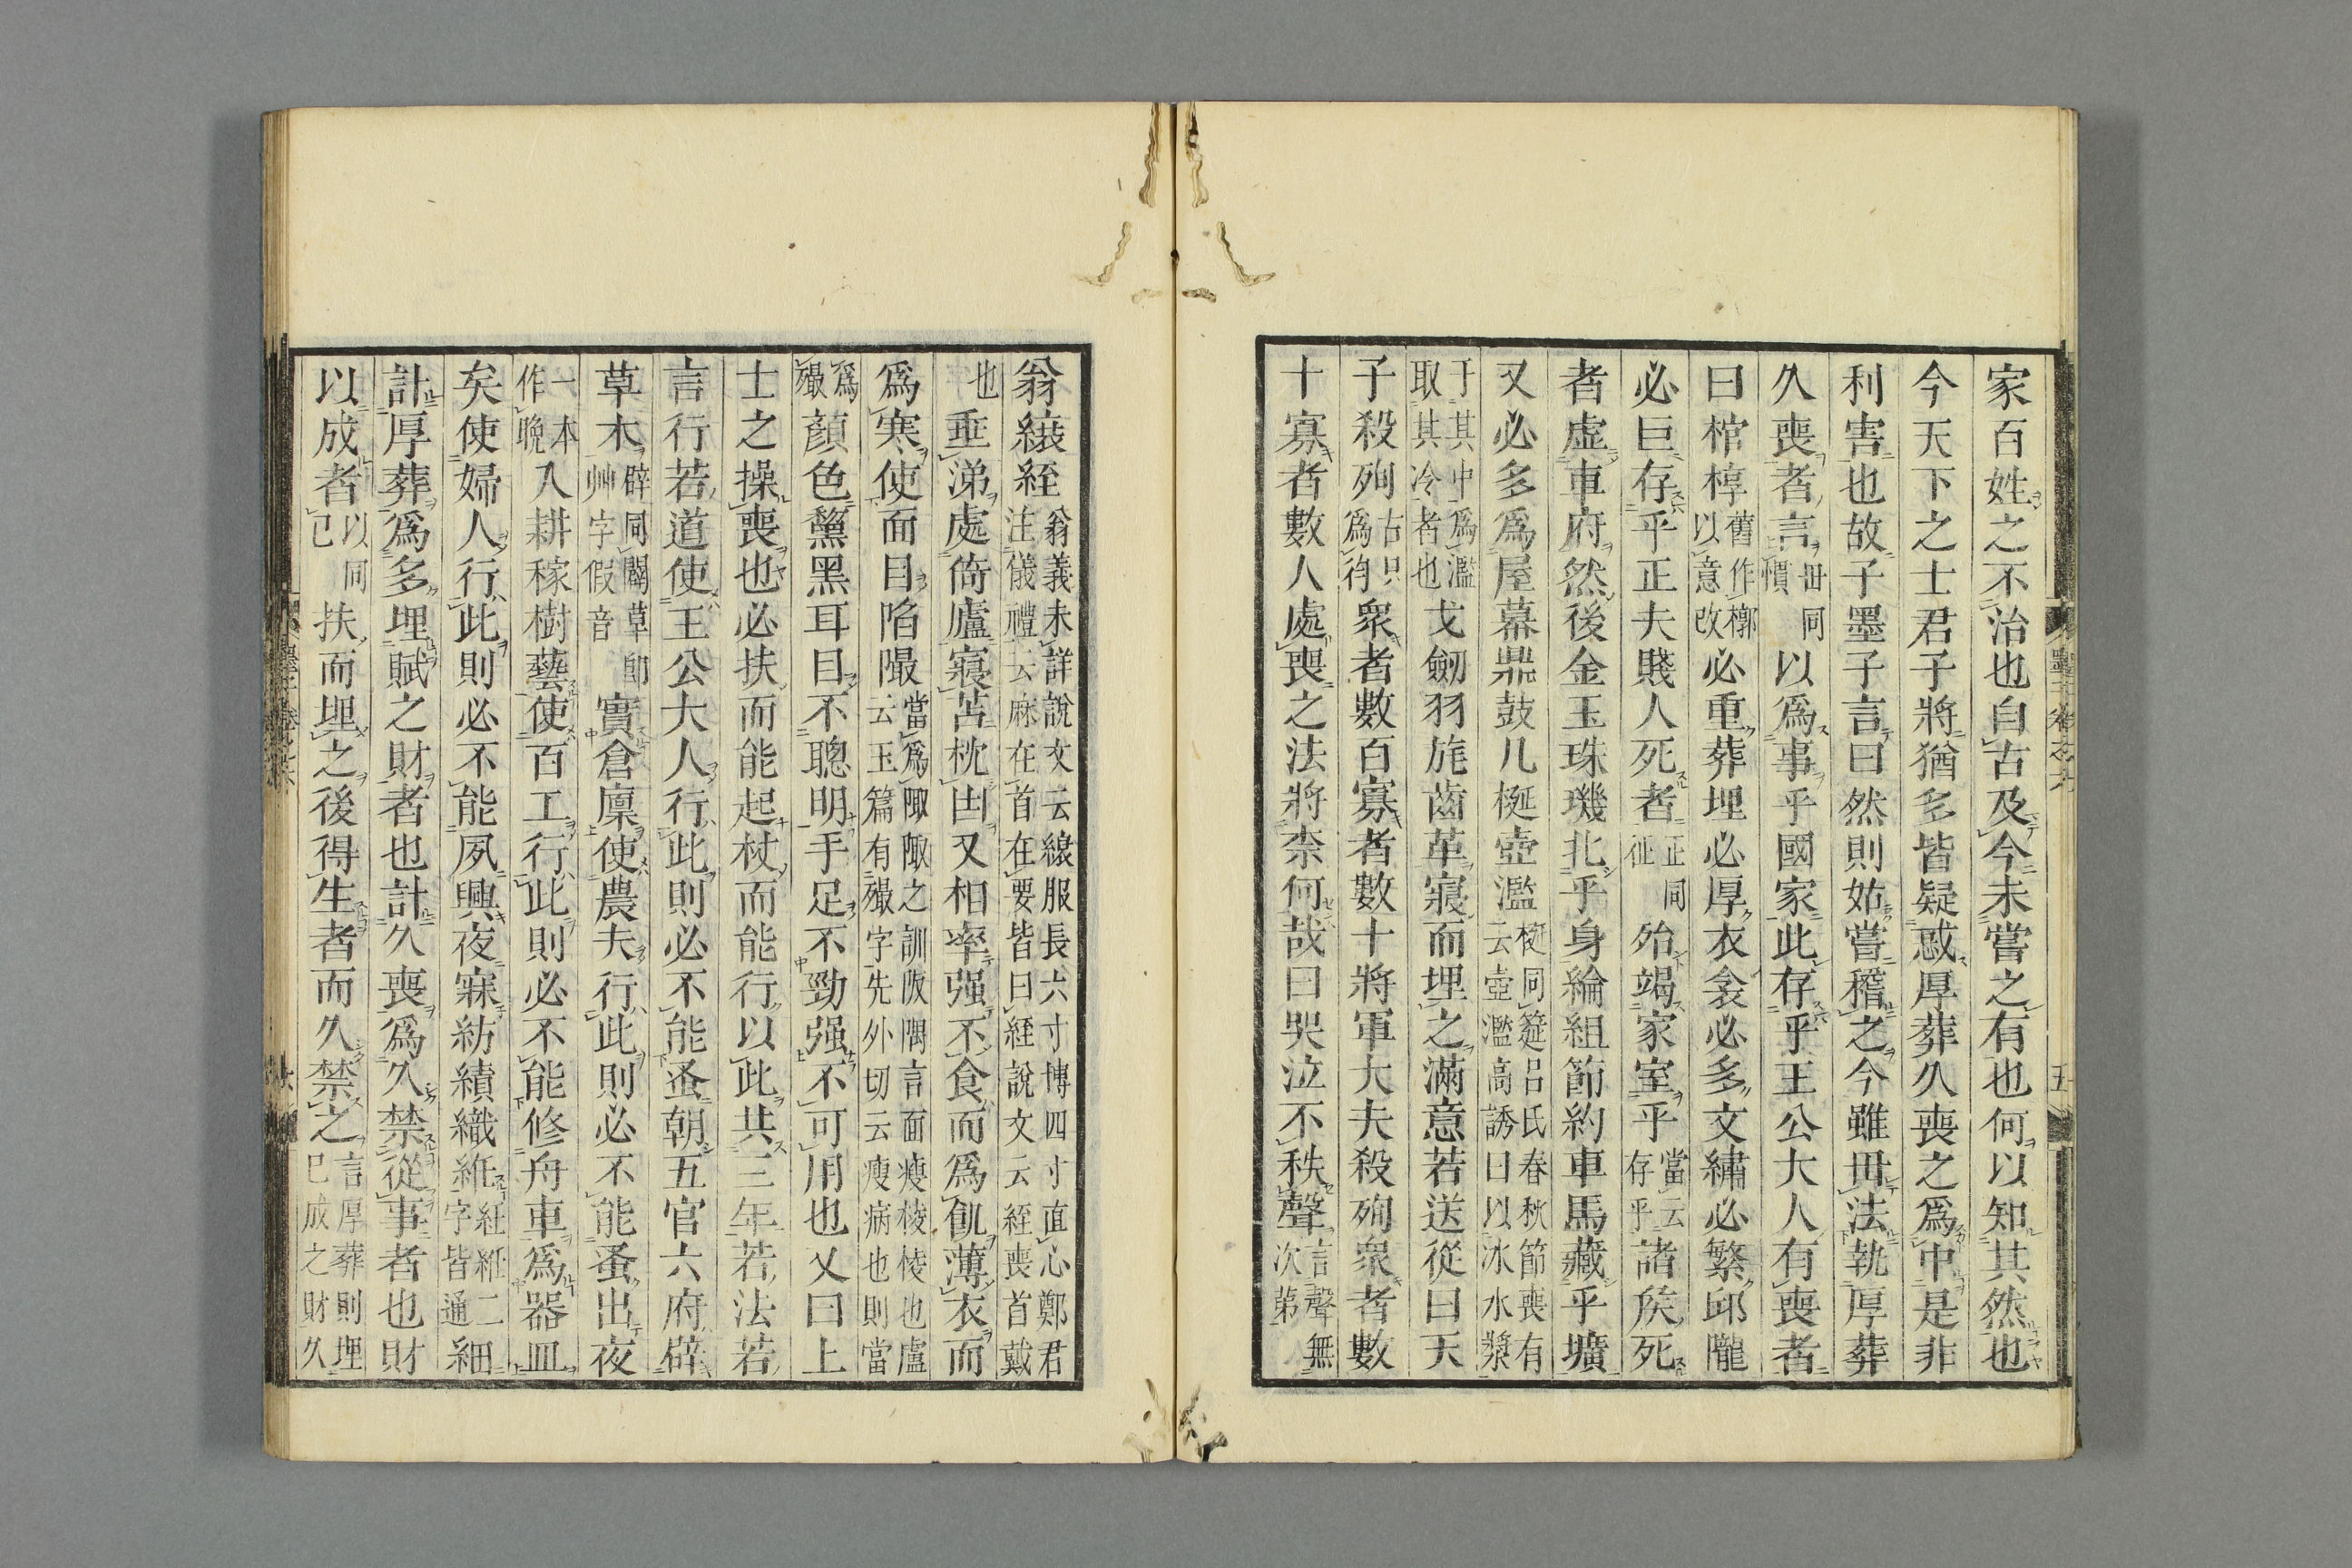 家百姓之不治也自古及今未嘗之有也何以知其然也
今天下之士君子將猶多皆疑惑厚葬久喪之爲中是非
利害也故子墨子言曰然則姑嘗稽之今雖毋法執厚葬
久喪者言毌同慣以爲事乎國家此存乎王公大人有喪者
曰棺椁舊作槨以意改必重葬埋必厚衣衾必多文繡必繁邱隴
必巨存乎正夫賤人死者正同征殆竭家室乎當云存乎諸矦死
者虛車府然後金玉珠璣北乎身綸組節約車馬藏乎壙
又必多爲屋幕鼎鼓几梴壺濫梴同筵呂氏春秋節喪有云壺濫高誘曰以冰水漿
于其中爲濫取其冷者也戈劒羽旄齒革寢而埋之滿意若送從曰天
子殺殉古只爲徇衆者數百寡者數十將軍大夫殺殉衆者數
十寡者數人處喪之法將柰何哉曰哭泣不秩聲言聲無次第
翁縗絰翁義未詳說文云縗服長六寸博四寸直心鄭君注儀禮云麻在首在要皆曰絰說文云絰喪首戴
也垂涕處倚廬寢苫枕凷又相率强不食而爲飢薄衣而
爲寒使面目陷陬當爲陬陬之訓阪隅言面瘦棱棱也盧云玉篇有殩字先外切云瘦病也則當
爲殩顏色黧黑耳目不聰明手足不勁强不可用也又曰上
士之操喪也必扶而能起杖而能行以此共三年若法若
言行若道使王公大人行此則必不能蚤朝五官六府辟
草木辟同闢草卽艸字假音實倉廩使農夫行此則必不能蚤出夜
一本作晩入耕稼樹藝使百工行此則必不能修舟車爲器皿
矣使婦人行此則必不能夙興夜寐紡績織紝紝紙二字皆通細
計厚葬爲多埋賦之財者也計久喪爲久禁從事者也財
以成者以同已扶而埋之後得生者而久禁之言厚葬則埋已成之財久